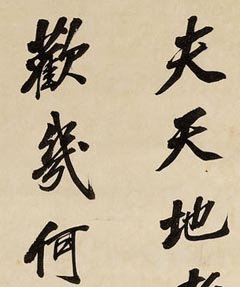 夫天地
歡幾何